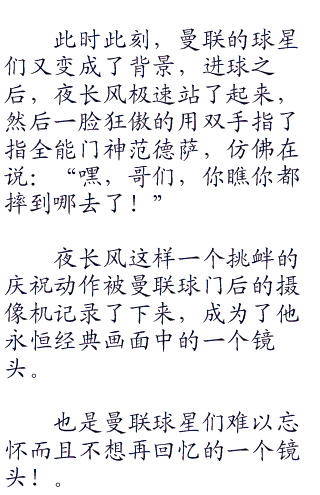 此时此刻，曼联的球星
们又变成了背景，进球之
后，夜长风极速站了起来，
然后一脸狂傲的用双手指了
指全能门神范德萨，仿佛在
说：“嘿，哥们，你瞧你都
摔到哪去了！”
夜长风这样一个挑衅的
庆祝动作被曼联球门后的摄
像机记录了下来，成为了他
永恒经典画面中的一个镜
头。
也是曼联球星们难以忘
怀而且不想再回忆的一个镜
头！。